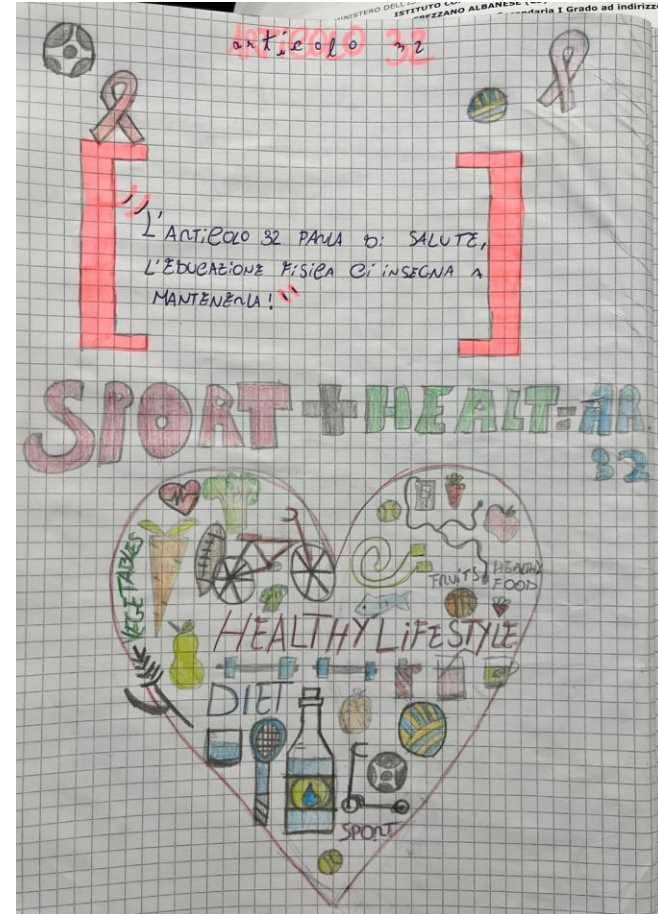 MINISTERO DELL'
ISTITUTO
SPEZZANO ALBANESE
Secondaria I Grado ad indirizzo
articolo 32
"L'ARTICOLO 32 PARLA DI SALUTE,
L'EDUCAZIONE FISICA CI INSEGNA A
MANTENERLA!"
SPORT + HEALT = AR.
32
VEGETABLES
FRUITS
HEALTHY
FOOD
HEALTHY LIFESTYLE
DIET
SPORT